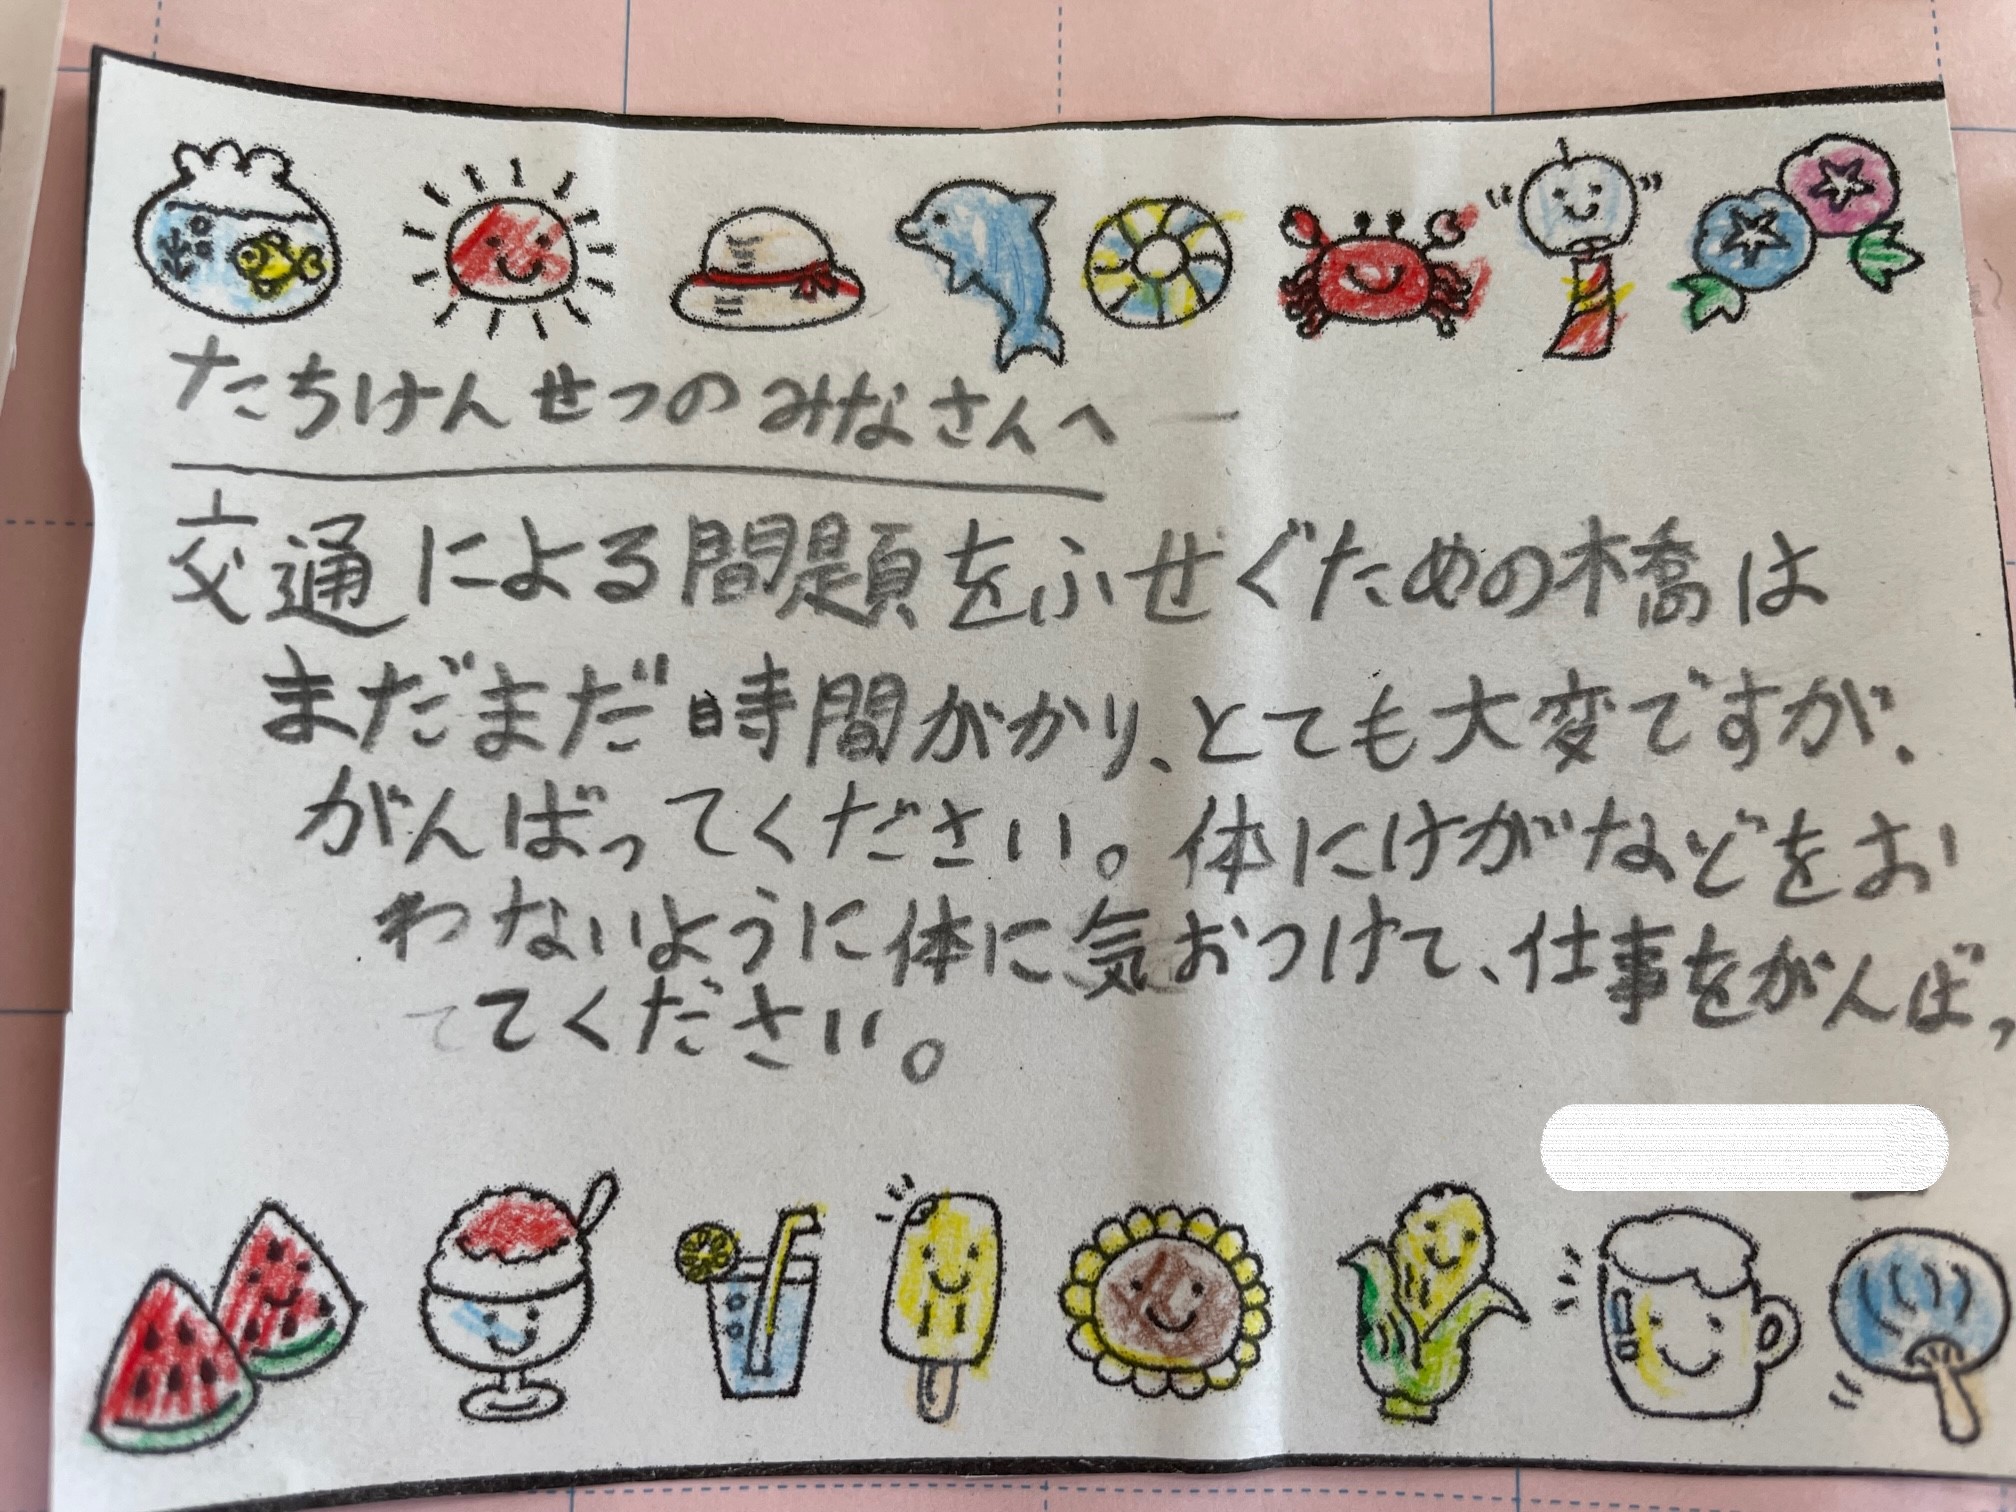 たちけんせつのみなさんへ
交通による問題をふせぐための橋は
まだまだ時間がかり、とても大変ですが、
がんばってください。体にけがなどをお
わないように体に気おつけて、仕事をがんばっ
てください。